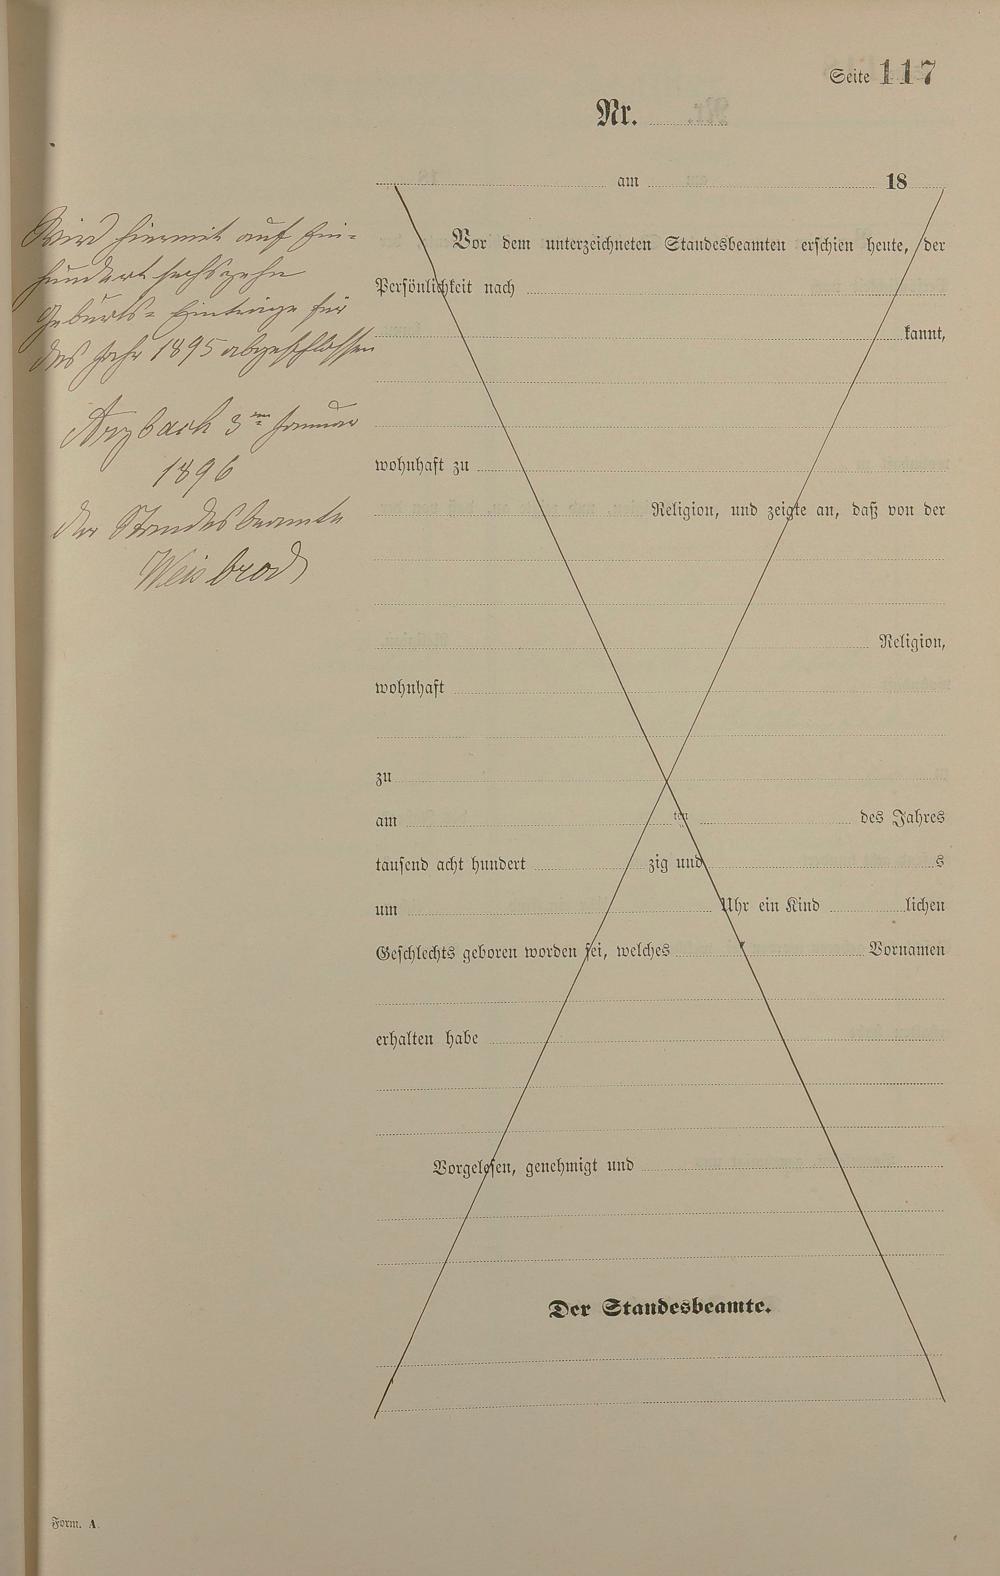 Seite 117
Nr.
am 18
Wird hiermit auf Ein-
hundert sechszehn
Geburts- Einträge für
das Jahr 1895 abgeschlossen
Arzbach 3ten Januar
1896
der Standesbeamte
Weisbrod
Vor dem unterzeichneten Standesbeamten erschien heute, der
Persönlichkeit nach
kannt,
wohnhaft zu
Religion, und zeigte an, daß von der
Religion,
wohnhaft
zu
am ten des Jahres
tausend acht hundert zig und s
um Uhr ein Kind lichen
Geschlechts geboren worden sei, welches Vornamen
erhalten habe
Vorgelesen, genehmigt und
Der Standesbeamte.
Form. A.